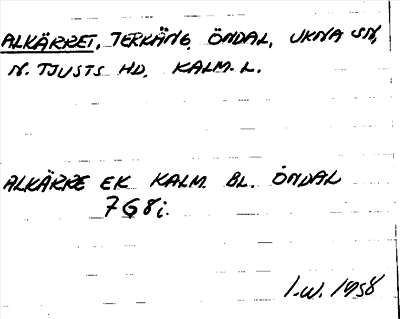 ALKÄRRET, TERKÄNG, ÖNDAL, UKNA SN,
N. TJUSTS HD, KALM. L.
ALKÄRRE EK KALM. BL. ÖNDAL
7G8i.
I.W. 1958